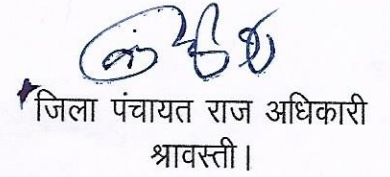 जिला पंचायत राज अधिकारी
श्रावस्ती।